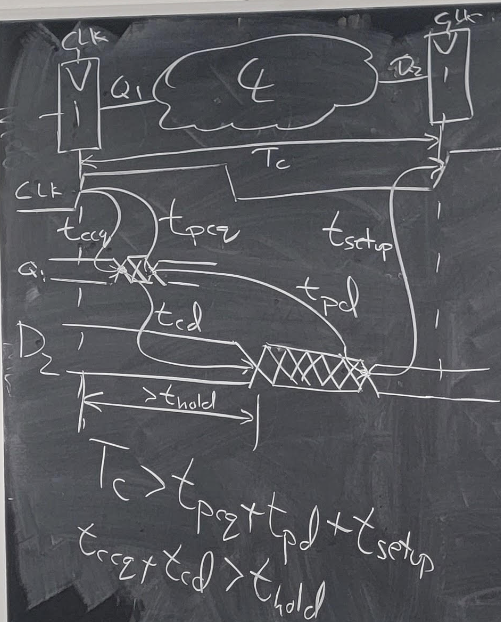 CLK
CLK
Q1
CL
D2
Tc
CLK
tccq
tpcq
tsetup
Q1
tcd
tpd
D2
>thold
Tc > tpcq + tpd + tsetup
tccq + tcd > thold